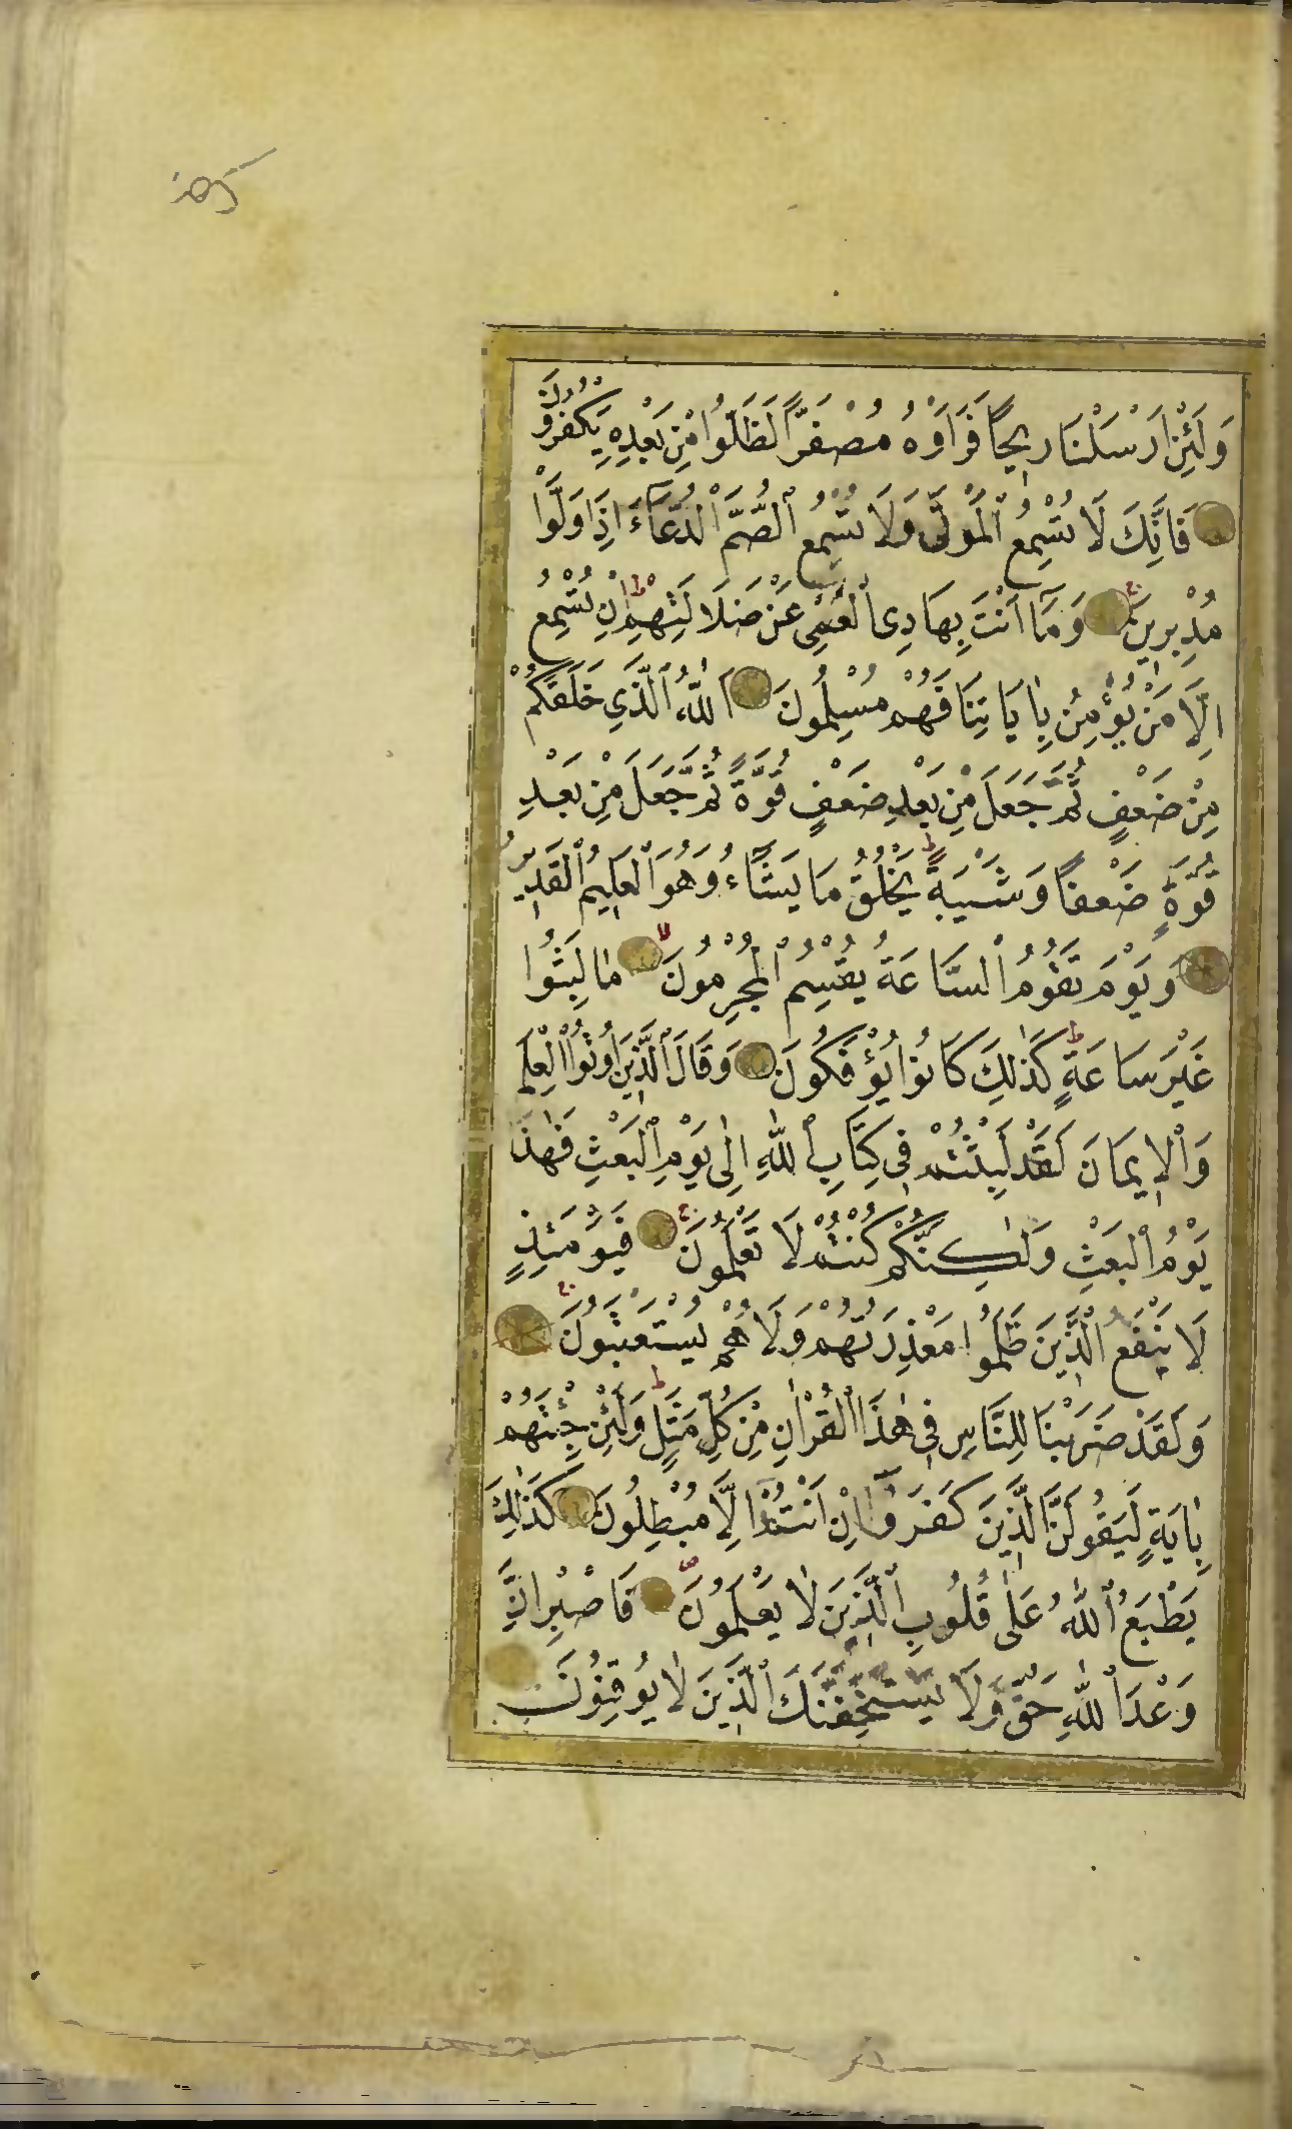 وَلَئِنْ اَرْسَلْنَا رِيحًا فَرَاَوْهُ مُصْفَرًّا لَظَلُّوا مِنْ بَعْدِهِ يَكْفُرُونَ
فَاِنَّكَ لَا تُسْمِعُ ٱلْمَوْتٰى وَلَا تُسْمِعُ ٱلصُّمَّ ٱلدُّعَآءَ اِذَا وَلَّوْا
مُدْبِرِينَ وَمَآ اَنْتَ بِهَادِى ٱلْعُمْىِ عَنْ ضَلَالَتِهِمْ اِنْ تُسْمِعُ
اِلَّا مَنْ يُؤْمِنُ بِاٰيَاتِنَا فَهُمْ مُسْلِمُونَ اَللّٰهُ ٱلَّذِي خَلَقَكُمْ
مِنْ ضَعْفٍ ثُمَّ جَعَلَ مِنْ بَعْدِ ضَعْفٍ قُوَّةً ثُمَّ جَعَلَ مِنْ بَعْدِ
قُوَّةٍ ضَعْفًا وَشَيْبَةً يَخْلُقُ مَا يَشَآءُ وَهُوَ ٱلْعَلِيمُ ٱلْقَدِيرُ
وَيَوْمَ تَقُومُ ٱلسَّاعَةُ يُقْسِمُ ٱلْمُجْرِمُونَ مَا لَبِثُوا
غَيْرَ سَاعَةٍ كَذٰلِكَ كَانُوا يُؤْفَكُونَ وَقَالَ ٱلَّذِينَ اُوتُوا ٱلْعِلْمَ
وَٱلْاِيمَانَ لَقَدْ لَبِثْتُمْ فِي كِتَابِ ٱللّٰهِ اِلٰى يَوْمِ ٱلْبَعْثِ فَهٰذَا
يَوْمُ ٱلْبَعْثِ وَلٰكِنَّكُمْ كُنْتُمْ لَا تَعْلَمُونَ فَيَوْمَئِذٍ
لَا يَنْفَعُ ٱلَّذِينَ ظَلَمُوا مَعْذِرَتُهُمْ وَلَا هُمْ يُسْتَعْتَبُونَ
وَلَقَدْ ضَرَبْنَا لِلنَّاسِ فِي هٰذَا ٱلْقُرْاٰنِ مِنْ كُلِّ مَثَلٍ وَلَئِنْ جِئْتَهُمْ
بِاٰيَةٍ لَيَقُولَنَّ ٱلَّذِينَ كَفَرُوٓا اِنْ اَنْتُمْ اِلَّا مُبْطِلُونَ كَذٰلِكَ
يَطْبَعُ ٱللّٰهُ عَلٰى قُلُوبِ ٱلَّذِينَ لَا يَعْلَمُونَ فَاصْبِرْ اِنَّ
وَعْدَ ٱللّٰهِ حَقٌّ وَلَا يَسْتَخِفَّنَّكَ ٱلَّذِينَ لَا يُوقِنُونَ